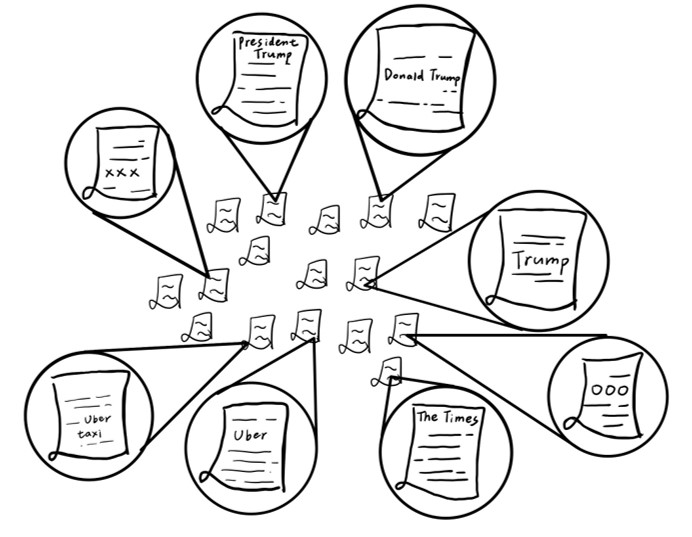 President
Trump
Donald Trump
xxx
Trump
Uber
taxi
Uber
The Times
ooo